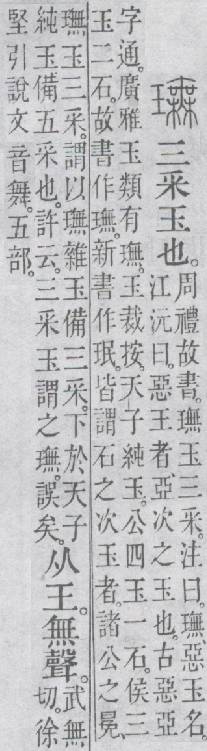 璑 三采玉也。
周禮故書。璑玉三采。注曰。璑惡玉名。
江沅曰。惡王者亞次之玉也。古惡亞
字通。廣雅玉類有璑。王裁按。天子純玉。公四玉一石。侯三
玉二石。故書作璑。新書作珉。皆謂石之次玉者。諸公之冕、
璑玉三采。謂以璑雜玉備三采。下於天子
純玉備五采也。許云。三采玉謂之璑。誤矣。
从王。無聲。
武無
切。徐
堅引說文音舞。五部。